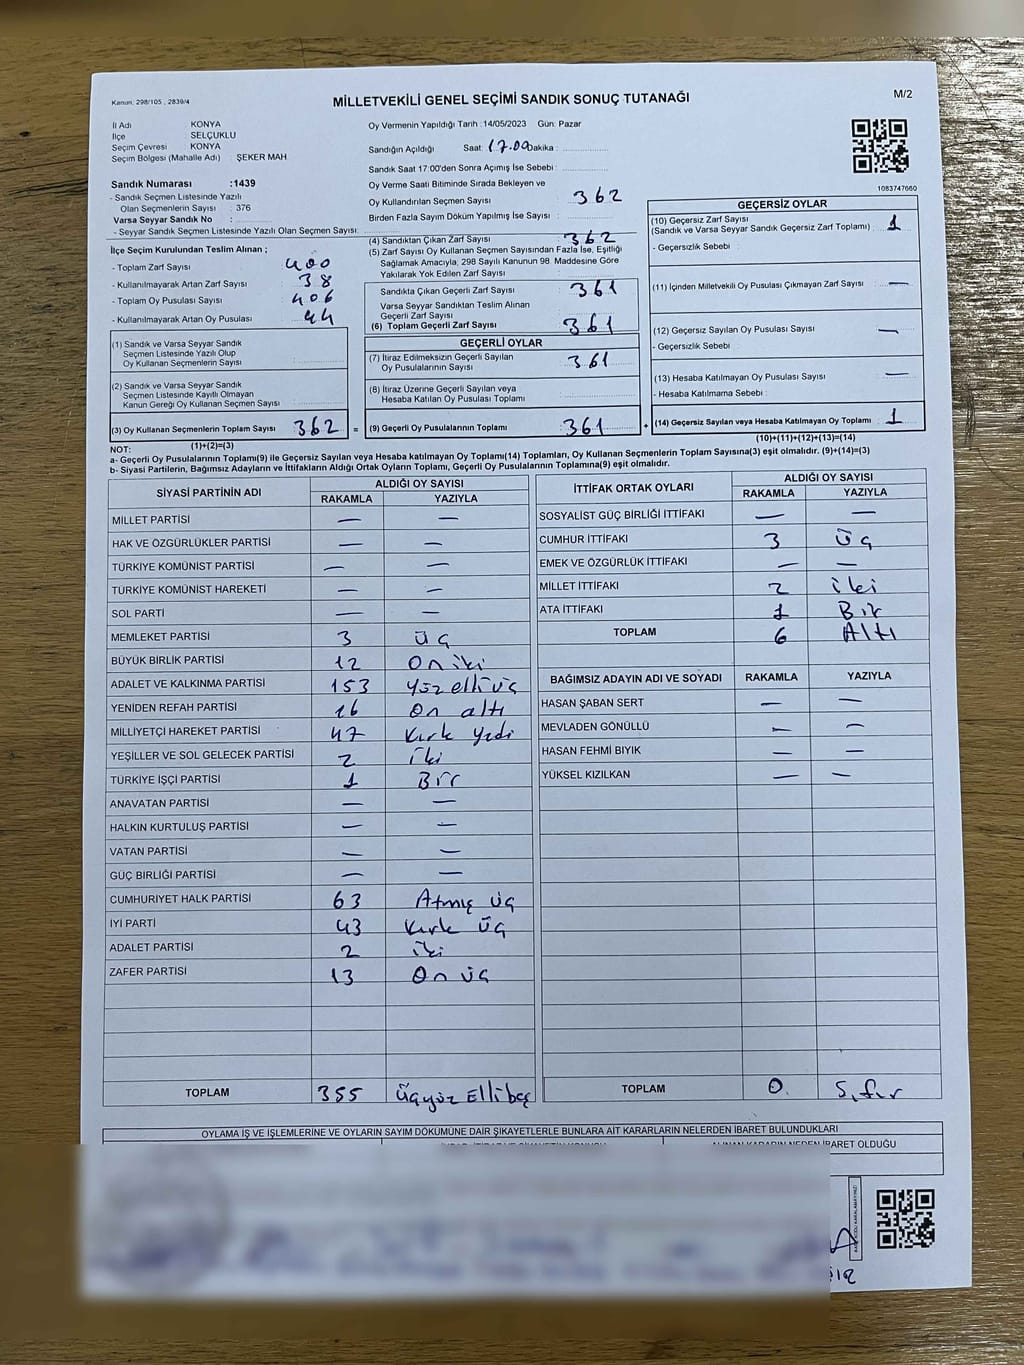 Kanun: 298/105 , 2839/4
MİLLETVEKİLİ GENEL SEÇİMİ SANDIK SONUÇ TUTANAĞI
M/2
İl Adı KONYA
İlçe SELÇUKLU
Seçim Çevresi : KONYA
Seçim Bölgesi (Mahalle Adı) : ŞEKER MAH
Sandık Numarası :1439
- Sandık Seçmen Listesinde Yazılı
Olan Seçmenlerin Sayısı : 376
Varsa Seyyar Sandık No :
- Seyyar Sandık Seçmen Listesinde Yazılı Olan Seçmen Sayısı:
Oy Vermenin Yapıldığı Tarih :14/05/2023 Gün: Pazar
Sandığın Açıldığı Saat: 17.00 Dakika :
Sandık Saat 17:00'den Sonra Açımış İse Sebebi :
Oy Verme Saati Bitiminde Sırada Bekleyen ve
Oy Kullandırılan Seçmen Sayısı 362
Birden Fazla Sayım Döküm Yapılmış İse Sayısı :
1083747660
İlçe Seçim Kurulundan Teslim Alınan ;
- Toplam Zarf Sayısı 400
- Kullanılmayarak Artan Zarf Sayısı : 38
- Toplam Oy Pusulası Sayısı 406
- Kullanılmayarak Artan Oy Pusulası : 44
(1) Sandık ve Varsa Seyyar Sandık
Seçmen Listesinde Yazılı Olup
Oy Kullanan Seçmenlerin Sayısı
(2) Sandık ve Varsa Seyyar Sandık
Seçmen Listesinde Kayıtlı Olmayan
Kanun Gereği Oy Kullanan Seçmen Sayısı
(3) Oy Kullanan Seçmenlerin Toplam Sayısı 362 =
(1)+(2)=(3)
(4) Sandıktan Çıkan Zarf Sayısı 362
(5) Zarf Sayısı Oy Kullanan Seçmen Sayısından Fazla İse, Eşitliği
Sağlamak Amacıyla, 298 Sayılı Kanunun 98. Maddesine Göre
Yakılarak Yok Edilen Zarf Sayısı :
Sandıkta Çıkan Geçerli Zarf Sayısı : 361
Varsa Seyyar Sandıktan Teslim Alınan
Geçerli Zarf Sayısı :
(6) Toplam Geçerli Zarf Sayısı 361
GEÇERLİ OYLAR
(7) İtiraz Edilmeksizin Geçerli Sayılan
Oy Pusulalarının Sayısı : 361
(8) İtiraz Üzerine Geçerli Sayılan veya
Hesaba Katılan Oy Pusulası Toplamı :
(9) Geçerli Oy Pusulalarının Toplamı 361 +
GEÇERSİZ OYLAR
(10) Geçersiz Zarf Sayısı
(Sandık ve Varsa Seyyar Sandık Geçersiz Zarf Toplamı) : 1
- Geçersizlik Sebebi :
(11) İçinden Milletvekili Oy Pusulası Çıkmayan Zarf Sayısı : —
(12) Geçersiz Sayılan Oy Pusulası Sayısı —
- Geçersizlik Sebebi :
(13) Hesaba Katılmayan Oy Pusulası Sayısı : —
- Hesaba Katılmama Sebebi :
(14) Geçersiz Sayılan veya Hesaba Katılmayan Oy Toplamı : 1
(10)+(11)+(12)+(13)=(14)
NOT:
a- Geçerli Oy Pusulalarının Toplamı(9) ile Geçersiz Sayılan veya Hesaba Katılmayan Oy Toplamı(14) Toplamları, Oy Kullanan Seçmenlerin Toplam Sayısına(3) eşit olmalıdır. (9)+(14)=(3)
b- Siyasi Partilerin, Bağımsız Adayların ve İttifakların Aldığı Ortak Oyların Toplamı, Geçerli Oy Pusulalarının Toplamına(9) eşit olmalıdır.
SİYASİ PARTİNİN ADI ALDIĞI OY SAYISI
RAKAMLA YAZIYLA
MİLLET PARTİSİ — —
HAK VE ÖZGÜRLÜKLER PARTİSİ — —
TÜRKİYE KOMÜNİST PARTİSİ — —
TÜRKİYE KOMÜNİST HAREKETİ — —
SOL PARTİ — —
MEMLEKET PARTİSİ 3 üç
BÜYÜK BİRLİK PARTİSİ 12 On iki
ADALET VE KALKINMA PARTİSİ 153 Yüz elli üç
YENİDEN REFAH PARTİSİ 16 On altı
MİLLİYETÇİ HAREKET PARTİSİ 47 Kırk yedi
YEŞİLLER VE SOL GELECEK PARTİSİ 2 İki
TÜRKİYE İŞÇİ PARTİSİ 1 Bir
ANAVATAN PARTİSİ — —
HALKIN KURTULUŞ PARTİSİ — —
VATAN PARTİSİ — —
GÜÇ BİRLİĞİ PARTİSİ — —
CUMHURİYET HALK PARTİSİ 63 Atmış üç
İYİ PARTİ 43 Kırk üç
ADALET PARTİSİ 2 iki
ZAFER PARTİSİ 13 On üç
TOPLAM 355 Üçyüz Ellibeş
İTTİFAK ORTAK OYLARI ALDIĞI OY SAYISI
RAKAMLA YAZIYLA
SOSYALİST GÜÇ BİRLİĞİ İTTİFAKI — —
CUMHUR İTTİFAKI 3 üç
EMEK VE ÖZGÜRLÜK İTTİFAKI — —
MİLLET İTTİFAKI 2 iki
ATA İTTİFAKI 1 Bir
TOPLAM 6 Altı
BAĞIMSIZ ADAYIN ADI VE SOYADI RAKAMLA YAZIYLA
HASAN ŞABAN SERT — —
MEVLADEN GÖNÜLLÜ — —
HASAN FEHMİ BIYIK — —
YÜKSEL KIZILKAN — —
TOPLAM 0. Sıfır
OYLAMA İŞ VE İŞLEMLERİNE VE OYLARIN SAYIM DÖKÜMÜNE DAİR ŞİKAYETLERLE BUNLARA AİT KARARLARIN NELERDEN İBARET BULUNDUKLARI
ALINAN KARARIN NEDEN İBARET OLDUĞU